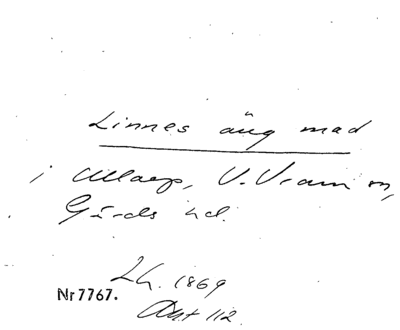 Linnes äng mad
i Maarp, V. Vram sn,
Gärds hd.
Lh. 1869
Nr 7767.
Akt 112